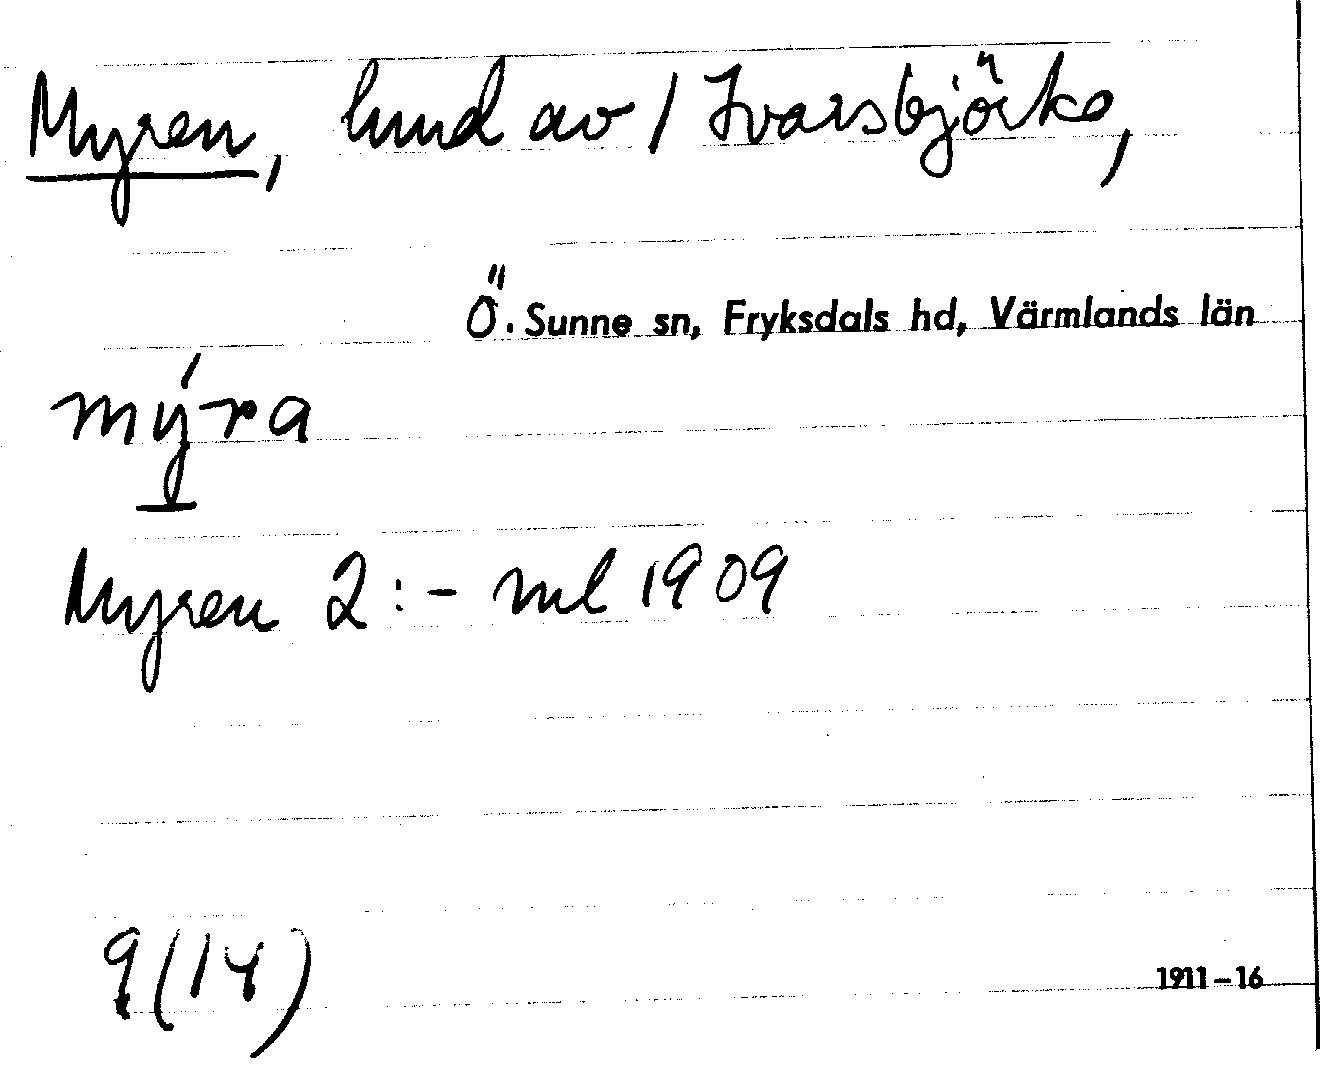 Myren, hmd av 1 Ivarsbjörke,
Ö. Sunne sn, Fryksdals hd, Värmlands län
mýra
Myren 2:- ml 1909
9(14)
1911-16